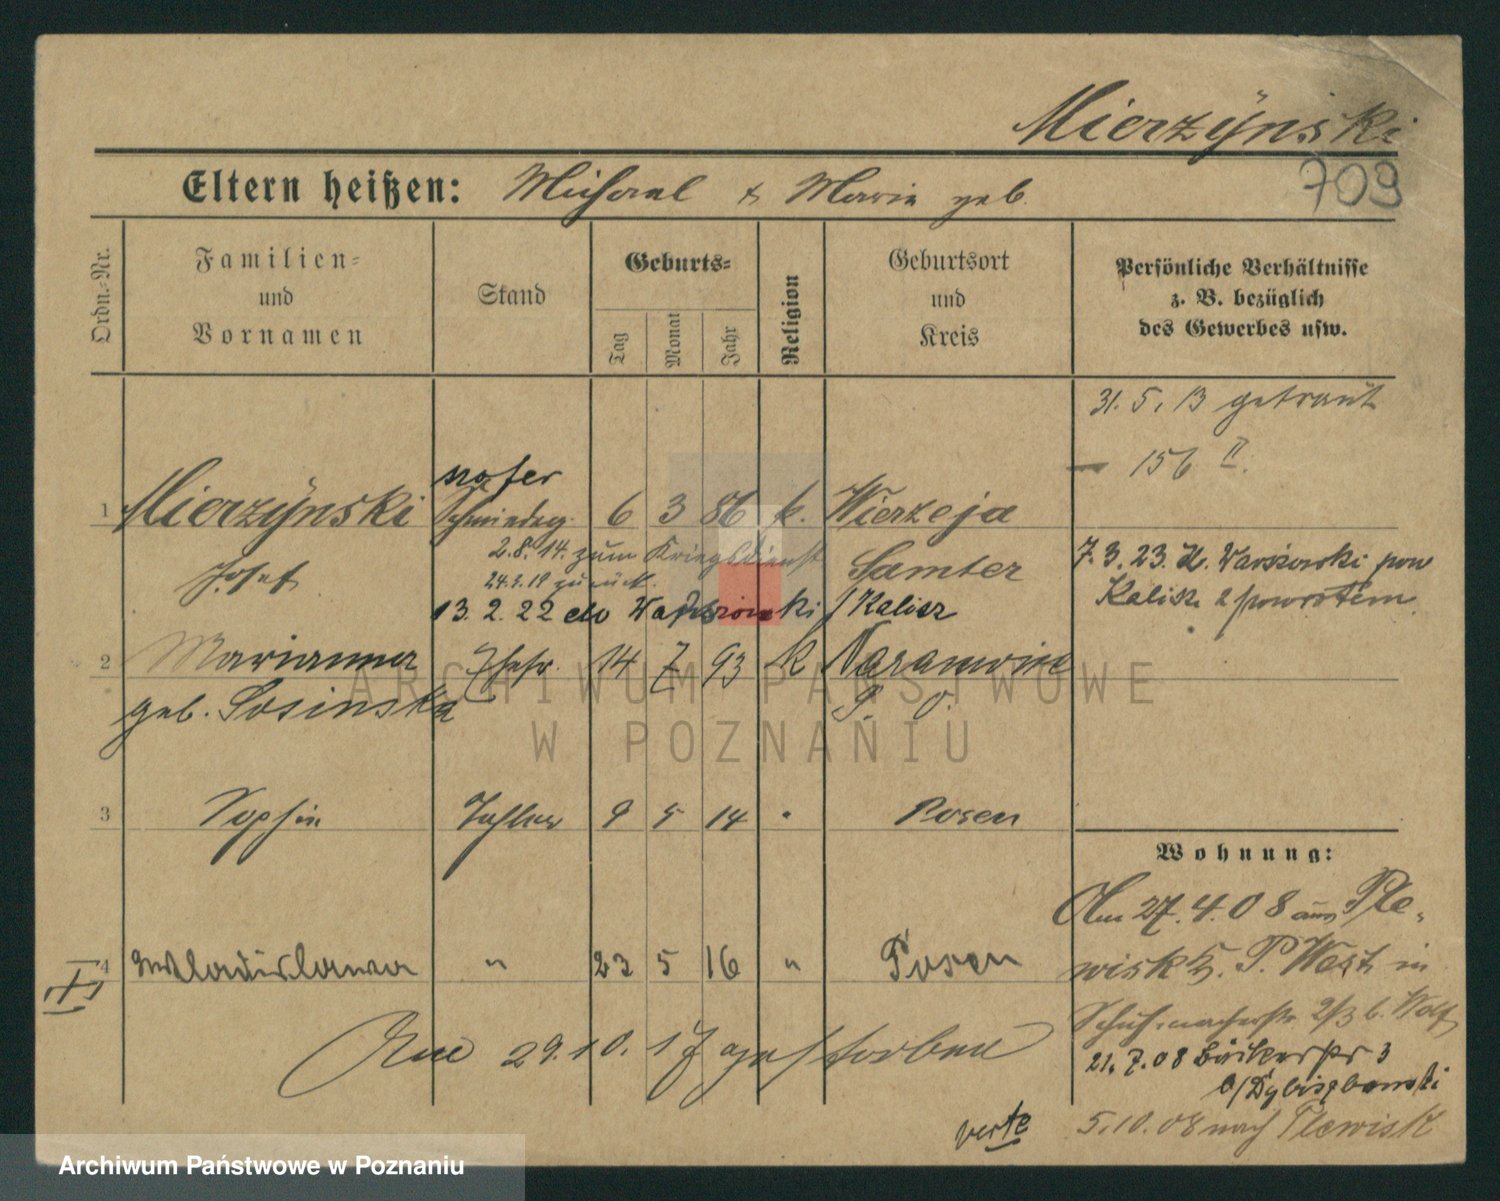 Mierzÿnski
709
Eltern heißen: Michael & Marie geb.
Ordn.-Nr.
Familien-
und
Vornamen
Stand
Geburts-
Tag
Monat
Jahr
Religion
Geburtsort
und
Kreis
Persönliche Verhältnisse
z. B. bezüglich
des Gewerbes usw.
31. 5. 13 getraut
156 II.
1 Mierzÿnski Schmiedeg. 6 3 86 k. Wierzeja
Josef
Samter
2.8.14. zum Kriegsdienst
24.3.19 zurück.
13. 2. 22 do / Kalisz
7. 3. 23. pow
Kalisz z powrotem
2 Marianna Ehefr. 14 7 93 k
geb. Sosinska P. O.
3 Sophie Tochter 9 5 14 " Posen
Wohnung:
Am 27. 4. 08 aus Ple-
wisk P. West in
Schuhmacherstr 2/3 b. Wolf
4 Wladislawa " 23 5 16 " Posen
Am 29. 10. 17 gestorben
21. 7. 08 Bäckerstr 3
5. 10. 08 nach Plewisk
verte
ARCHIWUM PAŃSTWOWE
W POZNANIU
Archiwum Państwowe w Poznaniu